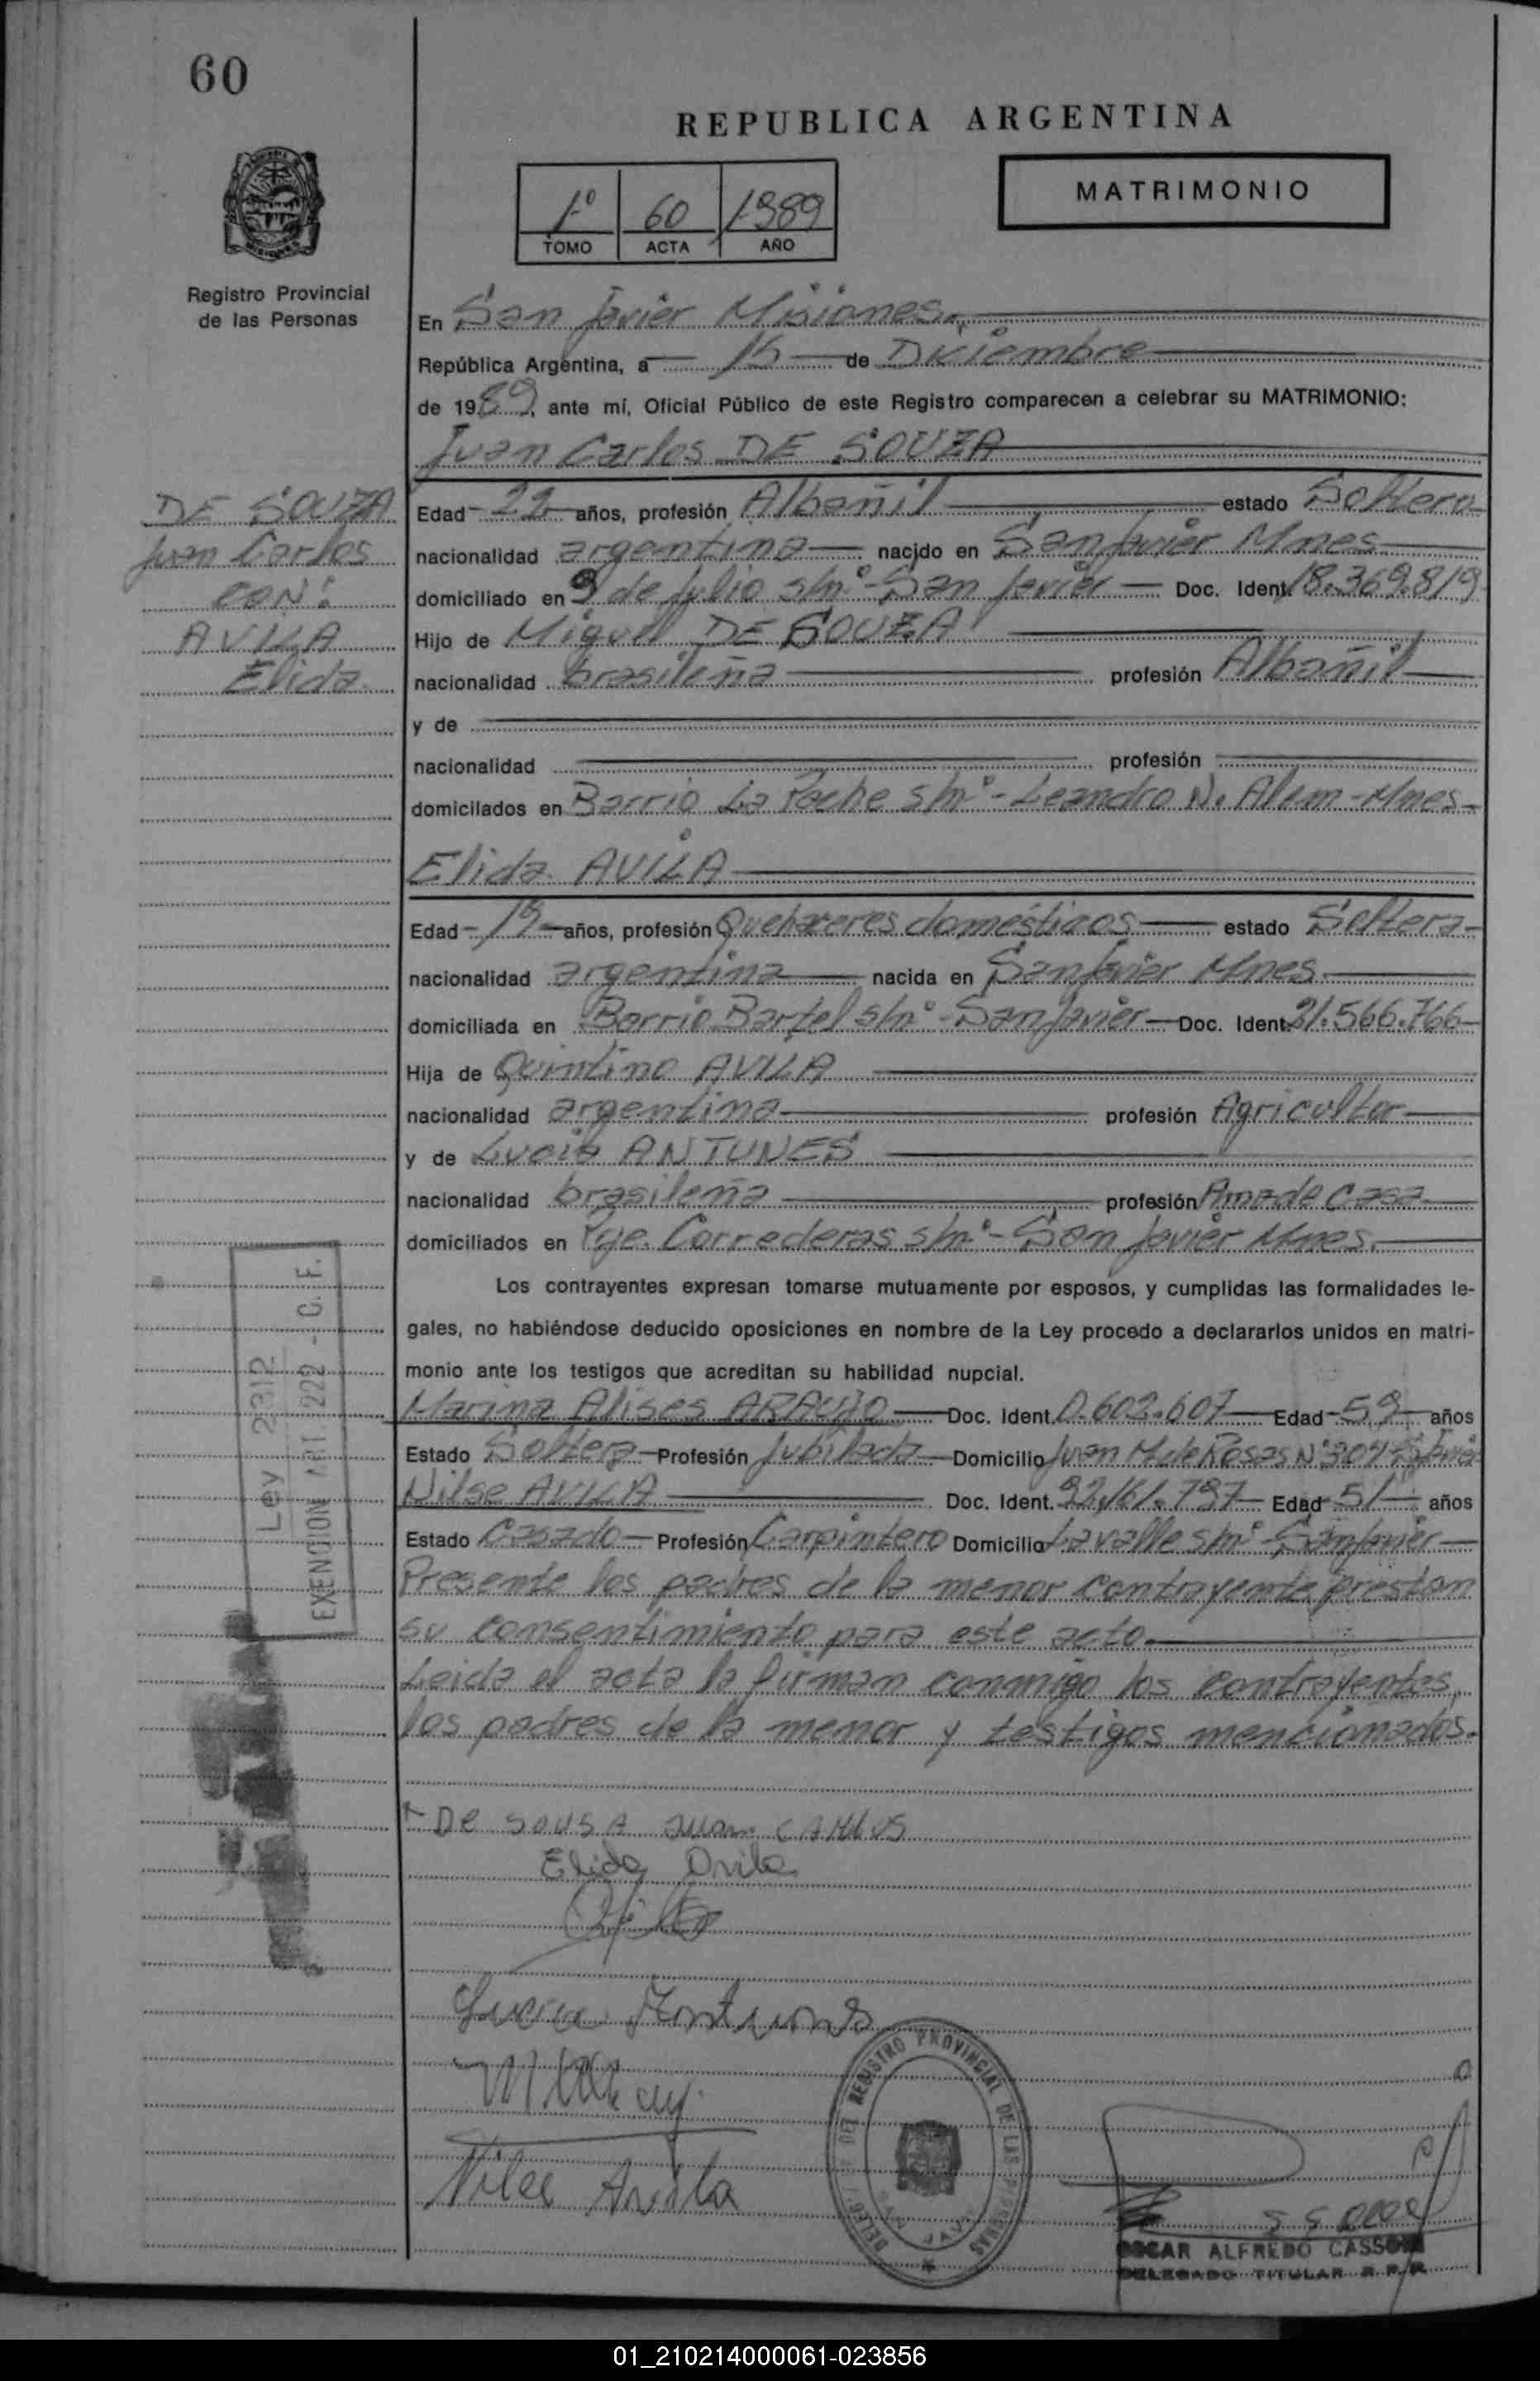 60
REPUBLICA ARGENTINA
MATRIMONIO
1º 60 1989
TOMO ACTA AÑO
Registro Provincial
de las Personas
En San Javier Misiones.
República Argentina, a 15 de Diciembre
de 1989, ante mí, Oficial Público de este Registro comparecen a celebrar su MATRIMONIO:
Juan Carlos DE SOUZA
DE SOUZA
Juan Carlos
CON:
AVILA
Elida
Edad 22 años, profesión Albañil estado Soltero
nacionalidad argentina nacido en San Javier Mnes
domiciliado en 9 de Julio s/nº San Javier Doc. Ident. 18.369.819
Hijo de Miguel DE SOUZA
nacionalidad brasileña profesión Albañil
y de
nacionalidad profesión
domicilados en Barrio La s/nº - Leandro N. Alem - Mnes
Elida AVILA
Edad 19 años, profesión Quehaceres domésticos estado Soltera
nacionalidad argentina nacida en San Javier Mnes
domiciliada en Barrio Bartel s/nº - San Javier Doc. Ident. 21.566.766
Hija de Quintino AVILA
nacionalidad argentina profesión Agricultor
y de Lucia ANTUNES
nacionalidad brasileña profesión Ama de Casa
domiciliados en Pje. Correderas s/nº - San Javier Mnes.
Los contrayentes expresan tomarse mutuamente por esposos, y cumplidas las formalidades le-
gales, no habiéndose deducido oposiciones en nombre de la Ley procedo a declararlos unidos en matri-
monio ante los testigos que acreditan su habilidad nupcial.
Marina Alises ARAUJO Doc. Ident. 0.602.607 Edad 59 años
Estado Soltera Profesión Jubilada Domicilio Juan M. de Rosas Nº 307
Nilse AVILA Doc. Ident. Edad 51 años
Estado Casado Profesión Carpintero Domicilio Lavalle s/nº San Javier
Presente los padres de la menor contrayente prestan
su consentimiento para este acto.
Leida el acta la firman conmigo los contrayentes,
los padres de la menor y testigos mencionados.
Ley 2312
EXENCION ART 222 - C. F.
DE SOUSA Juan CARLOS
Elida Avila
Lucia Antunes
Nilse Avila
DELEG. DEL REGISTRO PROVINCIAL DE LAS PERSONAS
SAN JAVIER
OSCAR ALFREDO CASSONI
DELEGADO TITULAR R.P.P.
01_210214000061-023856